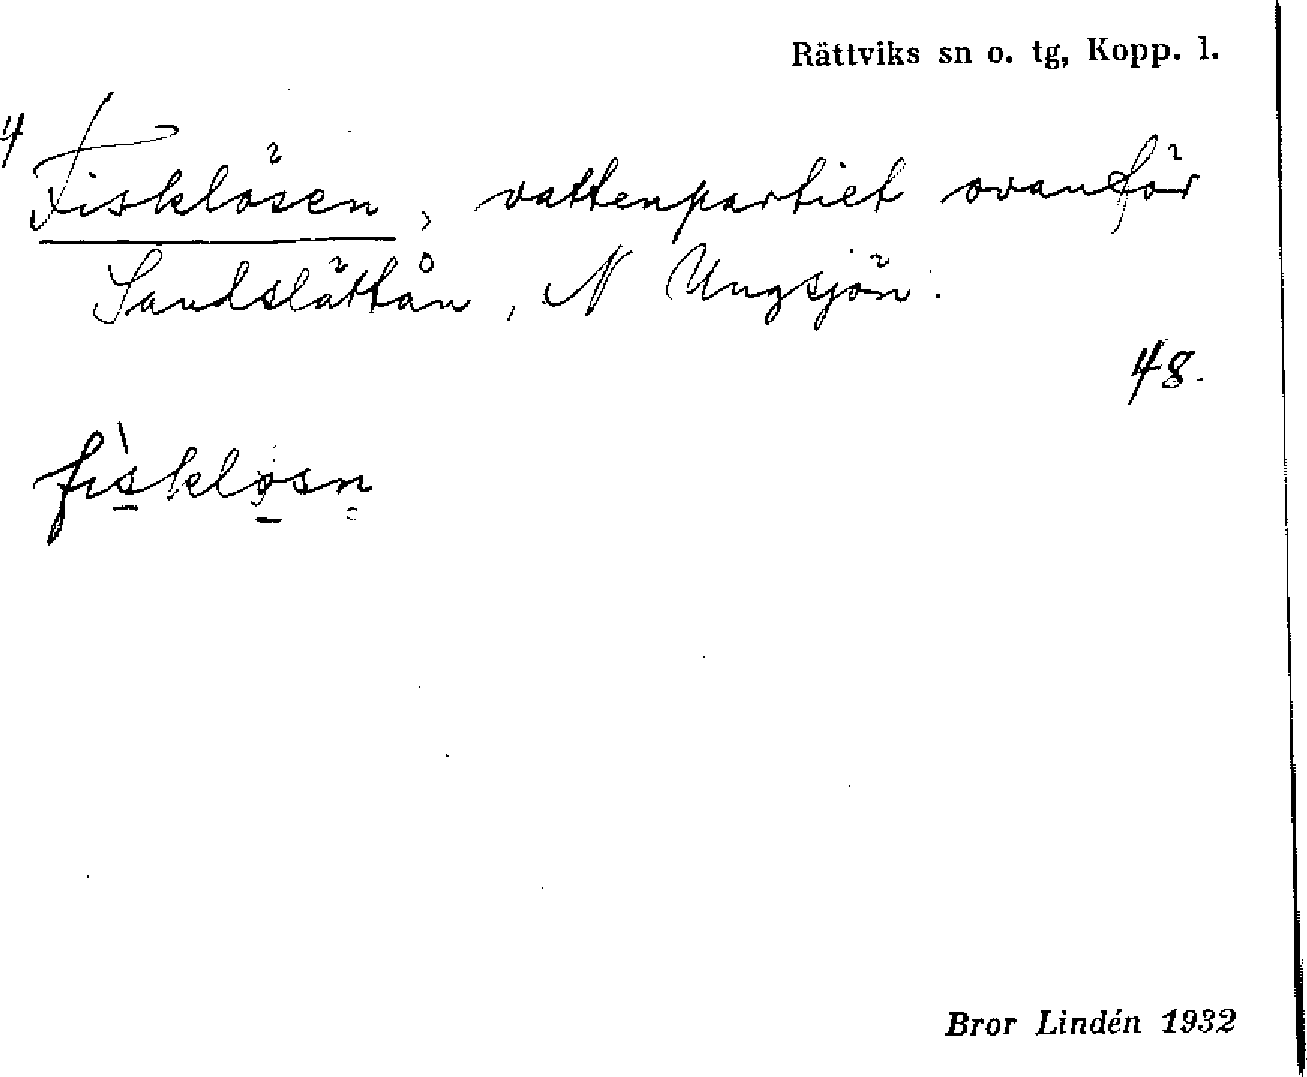 Rättviks sn o. tg, Kopp. l.
4
Fisklösen, vattenpartiet ovanför
Sandslättån, N Ungsjön.
48.
fìskløsn̥
Bror Lindén 1932